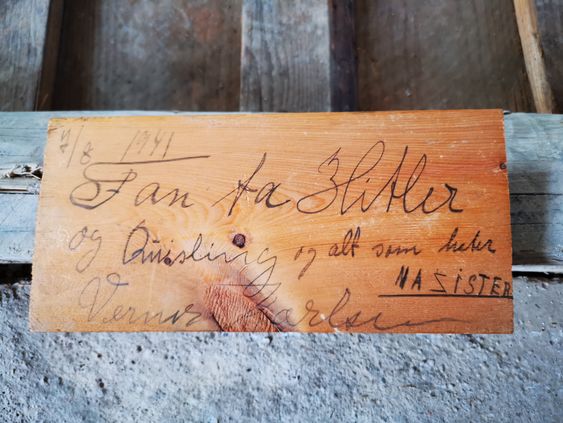 7/8 1941
Fan ta Hitler
og Quisling og alt som heter
NASISTER
Verner Karlsen